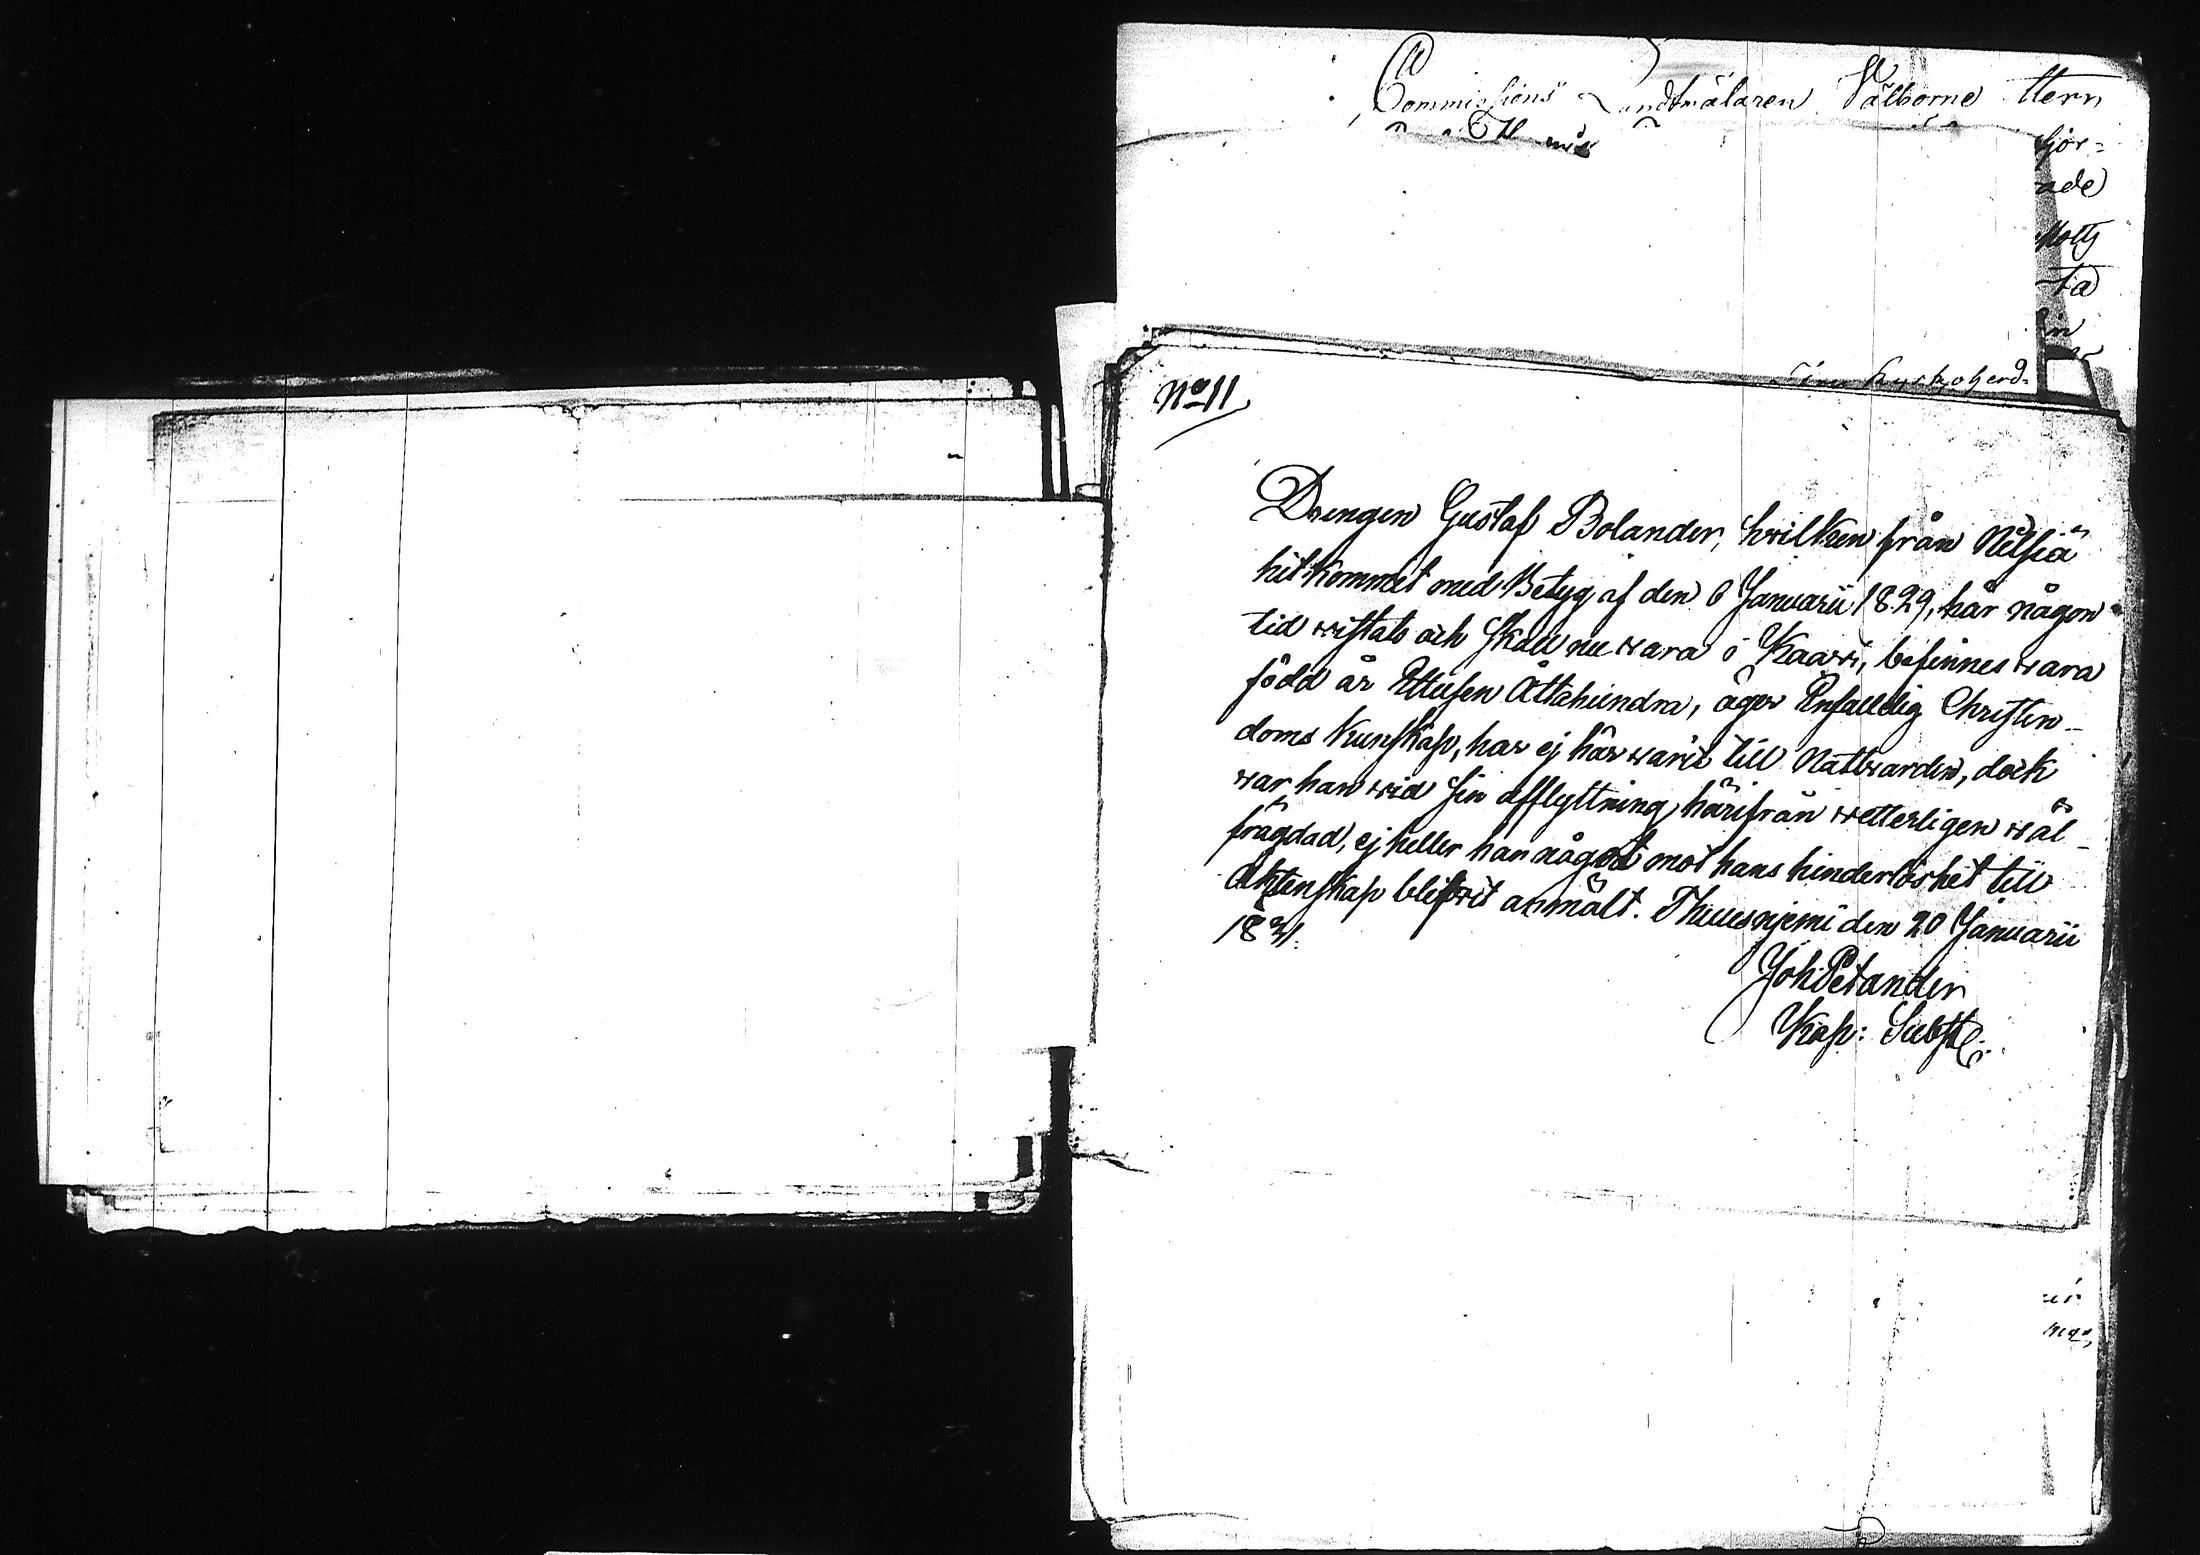 Commissions Landtmätaren Välborne Herr
för=
ade
Motty
ta
in
kyrkoherd=
No 11
Drengen Gustaf Bolander, hvilken från Nilsiä
hitkommet med Betyg af den 6 Januarii 1829, här någon
tid wistats och skall nu wara i Kaawi, befinnes wara
född år Ettusen Åttahundra, äger Enfalldig Christen-
doms kunskap, har ej här warit till Nattwarden, dock
war han wid sin afflyttning härifrån wetterligen wäl
frägdad, ej heller har något mot hans hinderlöshet till
Äktenskap blifwit anmält. Thuusnjemi den 20 Januarii
1831.
Joh Petander
Kap: Subst: